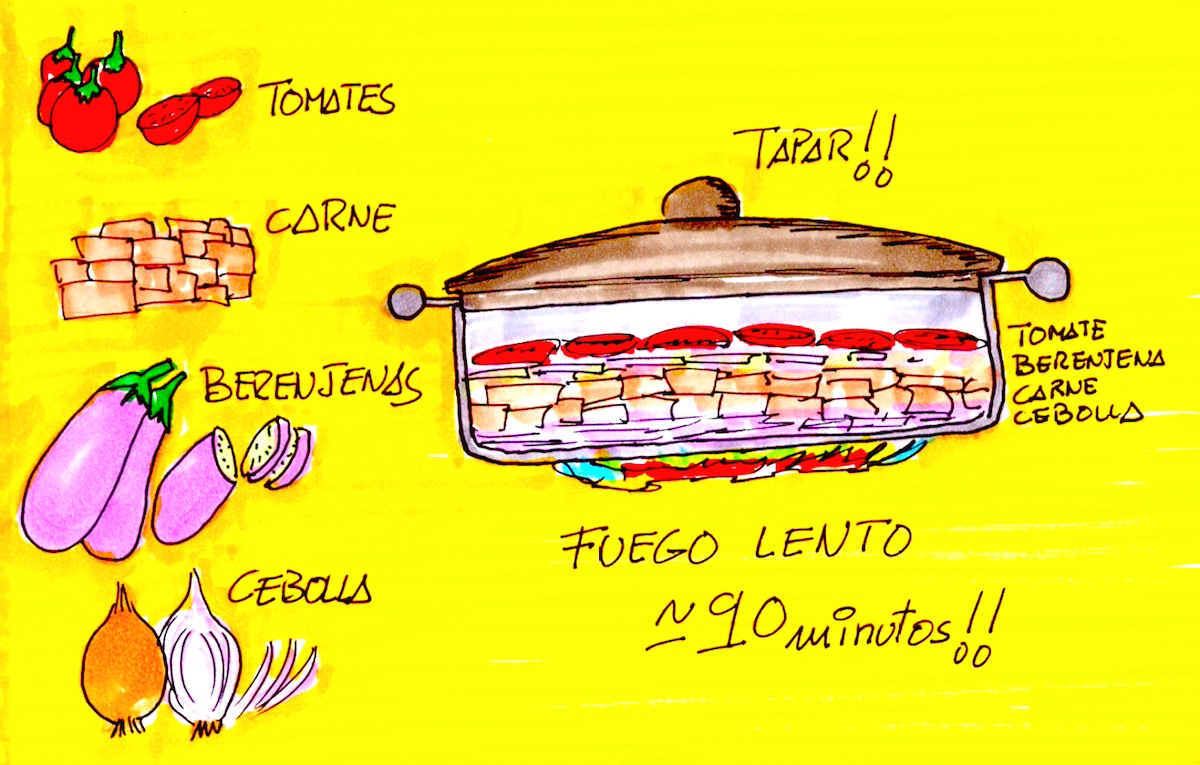 TOMATES
CARNE
BERENJENAS
CEBOLLA
TAPAR!!
TOMATE
BERENJENA
CARNE
CEBOLLA
FUEGO LENTO
~90 minutos!!